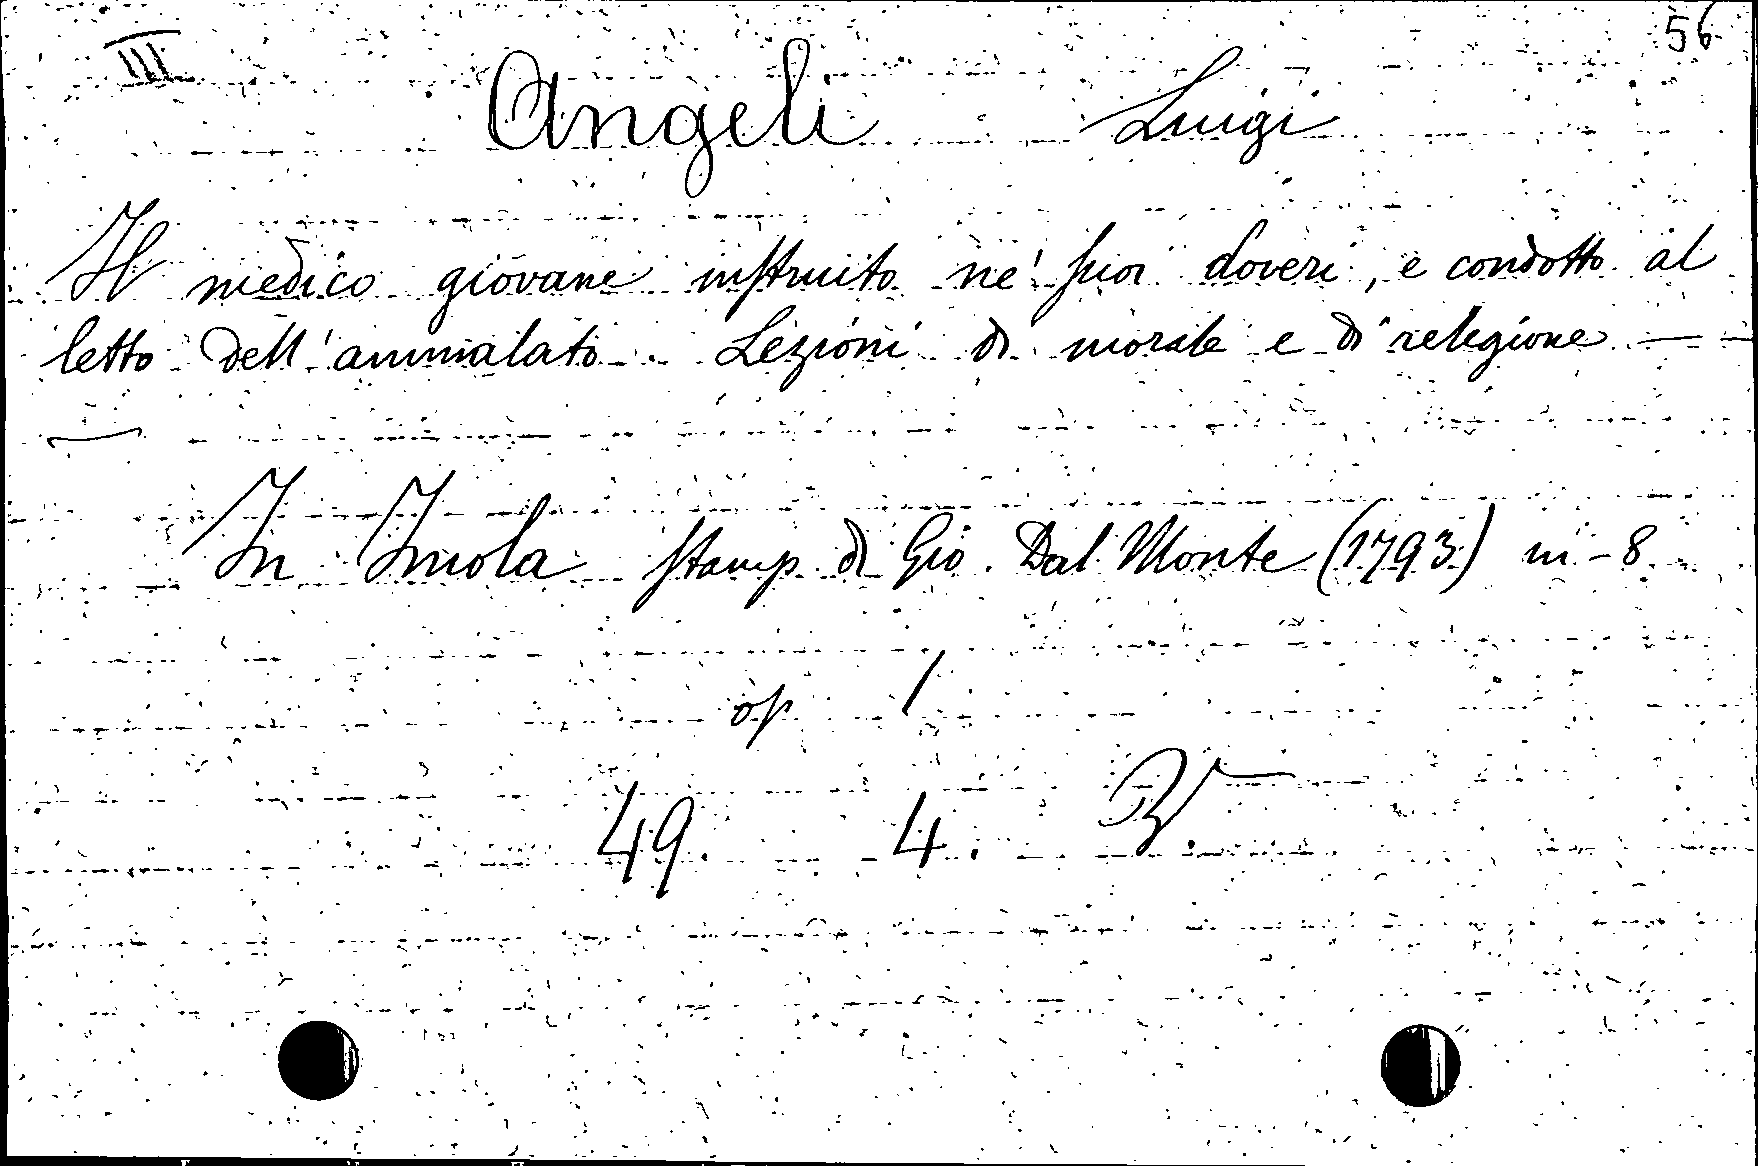 III 56
Angeli Luigi
Il medico giovane instruito ne' suoi doveri, e condotto al
letto dell'ammalato. Lezioni di morale e di religione —
—
In Imola stamp. di Gio. Dal Monte (1793) in-8
op 1
49. 4.